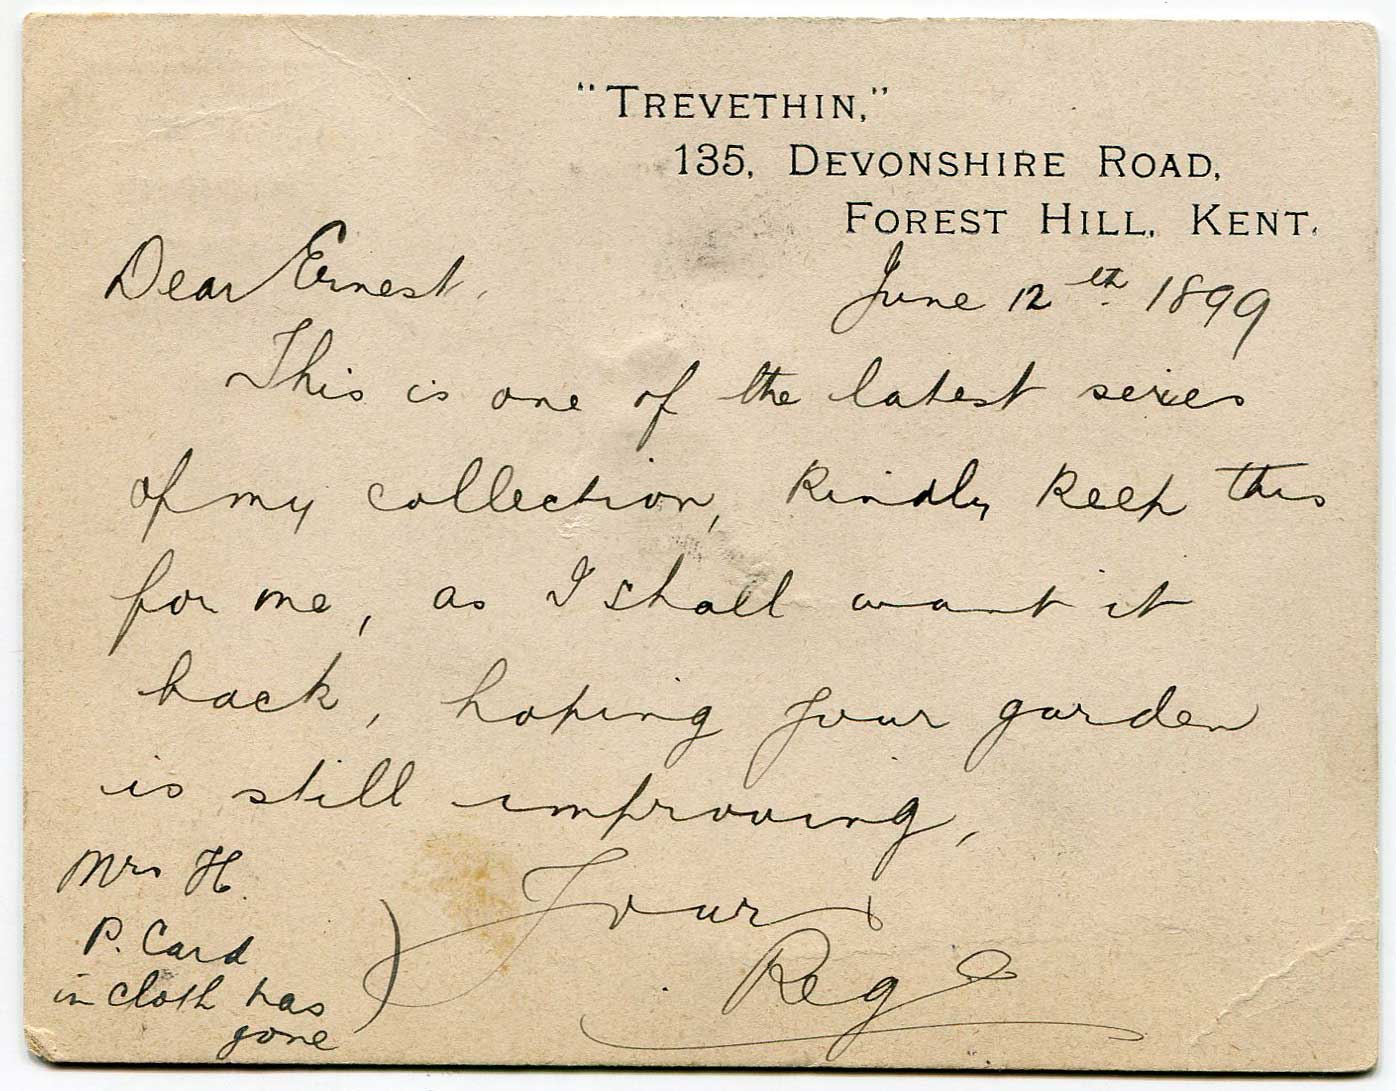 "TREVETHIN,"
135, DEVONSHIRE ROAD,
FOREST HILL, KENT.
Dear Ernest,
June 12th 1899
This is one of the latest series
of my collection, kindly keep this
for me, as I shall want it
back, hoping your garden
is still improving,
Yours
Reg
Mrs H.
P. Card
in cloth has
gone